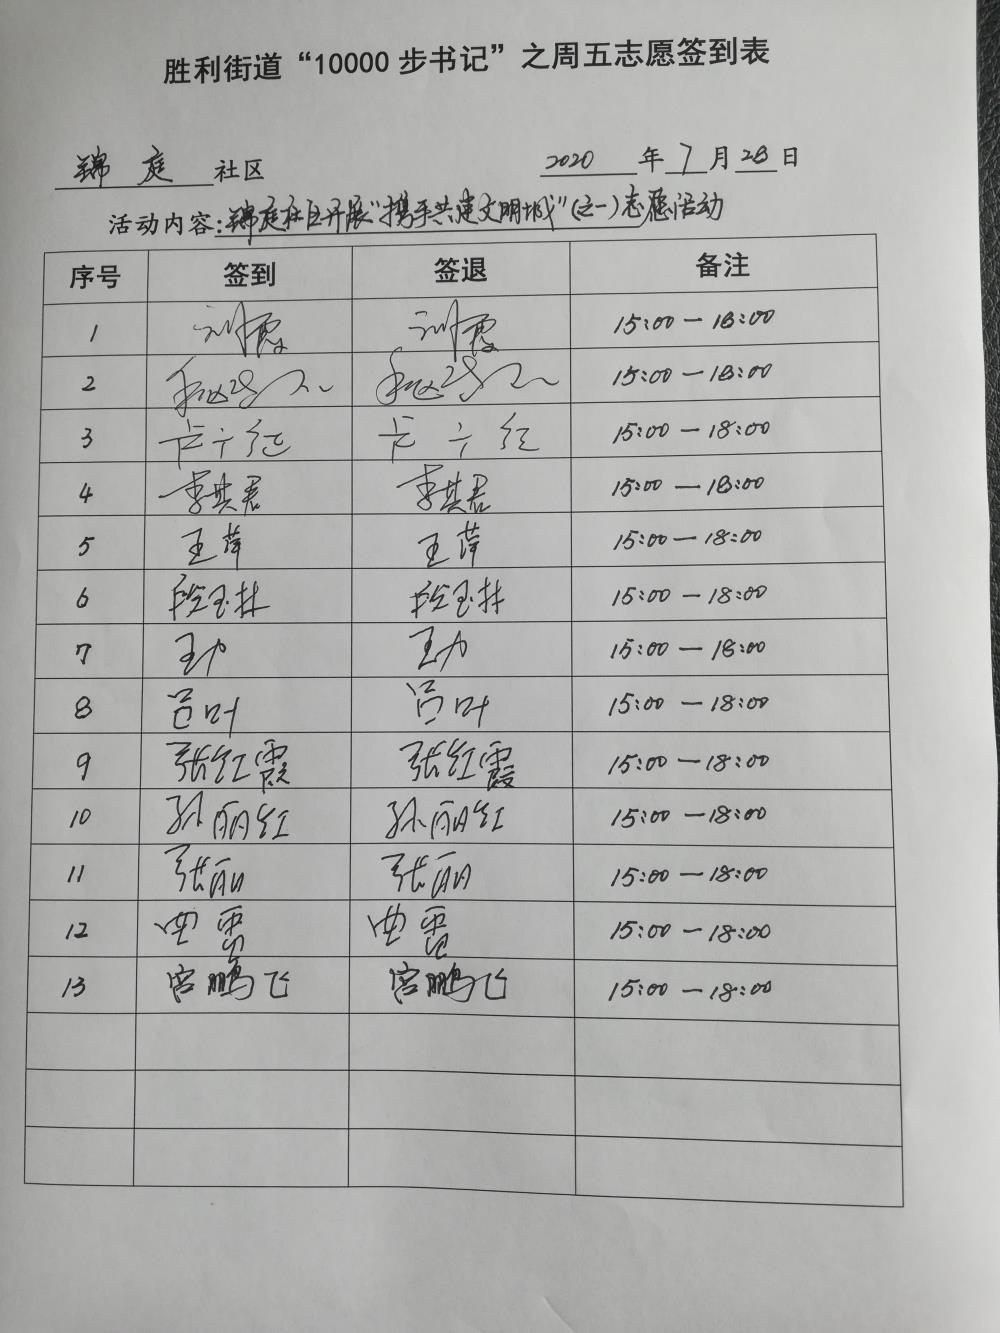 胜利街道“10000步书记”之周五志愿签到表
锦庭社区 2020年7月28日
活动内容:锦庭社区开展“携手共建文明城”(之一)志愿活动
序号 签到 签退 备注
1 刘霞 刘霞 15:00—18:00
2 15:00—18:00
3 15:00—18:00
4 李其君 李其君 15:00—18:00
5 王萍 王萍 15:00—18:00
6 段玉林 段玉林 15:00—18:00
7 15:00—18:00
8 吕叶 吕叶 15:00—18:00
9 张红霞 张红霞 15:00—18:00
10 孙丽红 孙丽红 15:00—18:00
11 张丽 张丽 15:00—18:00
12 曲雪 曲雪 15:00—18:00
13 宫鹏飞 宫鹏飞 15:00—18:00